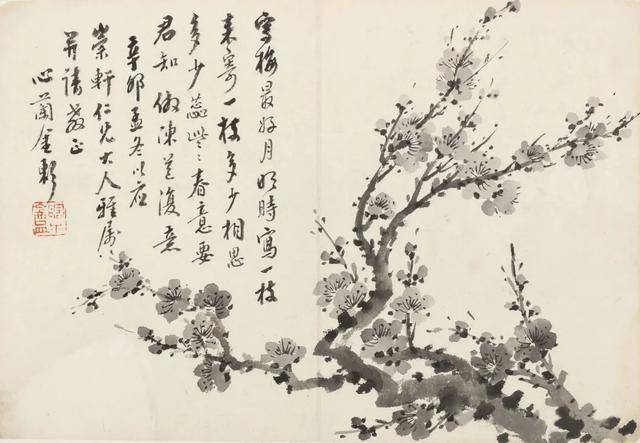 寫梅最好月明時寫一枝
來寄一枝多少相思
多少蕊些々春意要
君知倣陳道復意
辛卯孟冬以应
崇軒仁兄大人雅属
并請教正
心蘭金